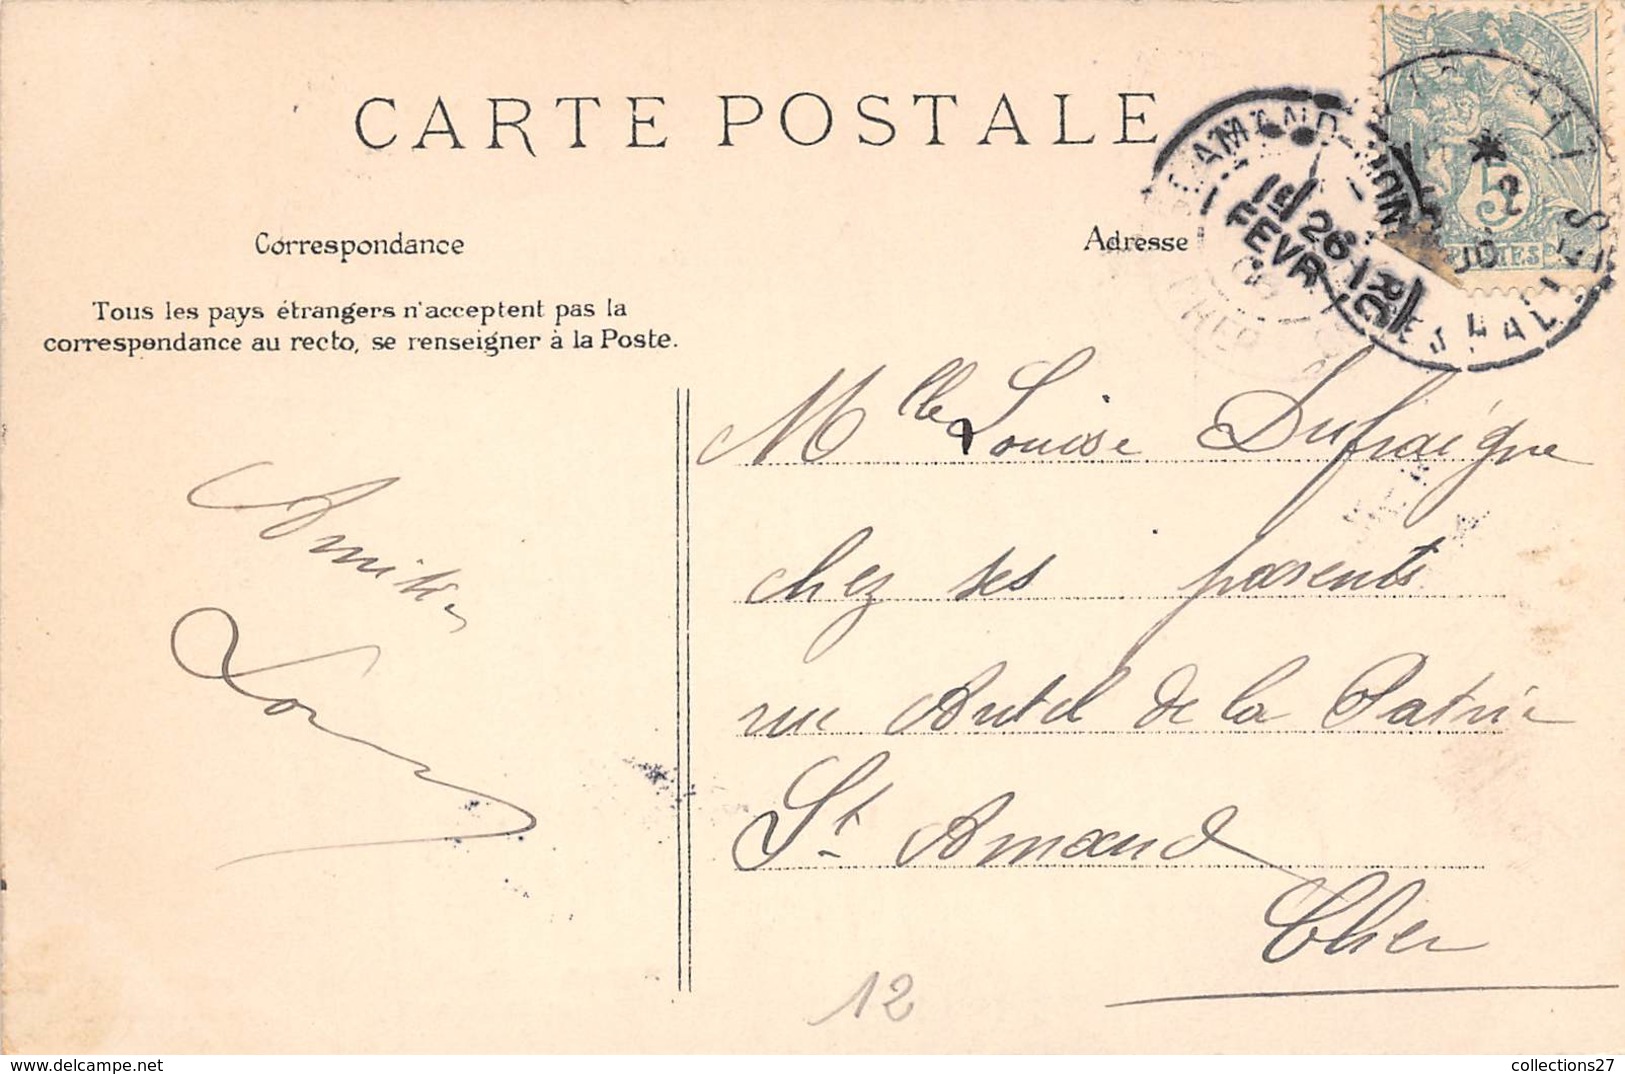 CARTE POSTALE
Correspondance
Adresse
Tous les pays étrangers n'acceptent pas la
correspondance au recto, se renseigner à la Poste.
AMAND-MON
15
26
FEVR
CHER
5
Mlle Louise Dufraigne
chez ses parents
rue Autel de la Patrie
St. Amand
Cher
Amitiés
12
collections27